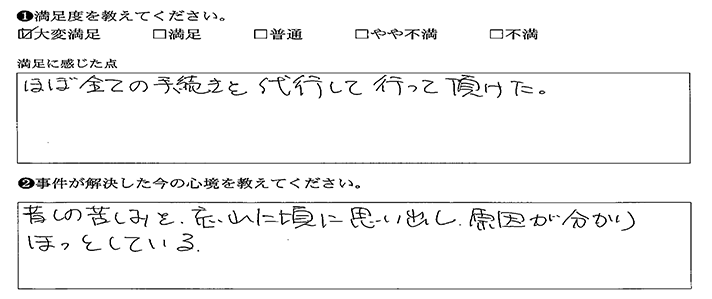 ❶満足度を教えてください。
☑大変満足 □満足 □普通 □やや不満 □不満
満足に感じた点
ほぼ全ての手続きを代行して行って頂けた。
❷事件が解決した今の心境を教えてください。
昔しの苦しみを、忘れた頃に思い出し、原因が分かり
ほっとしている。